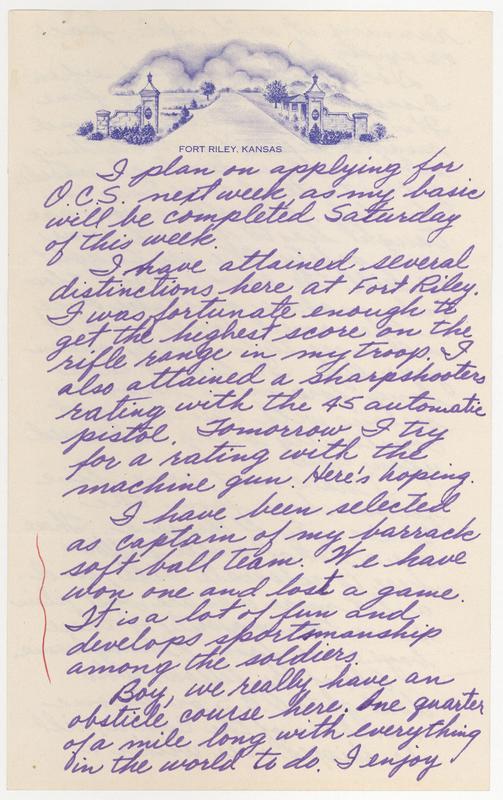 FORT RILEY, KANSAS
I plan on applying for
O.C.S. next week as my basic
will be completed Saturday
of this week.
I have attained several
distinctions here at Fort Riley.
I was fortunate enough to
get the highest score on the
rifle range in my troop. I
also attained a sharpshooters
rating with the 45 automatic
pistol. Tomorrow I try
for a rating with the
machine gun. Here's hoping.
I have been selected
as captain of my barrack
soft ball team. We have
won one and lost a game.
It is a lot of fun and
develops sportsmanship
among the soldiers.
Boy, we really have an
obsticle course here. One quarter
of a mile long with everything
in the world to do. I enjoy